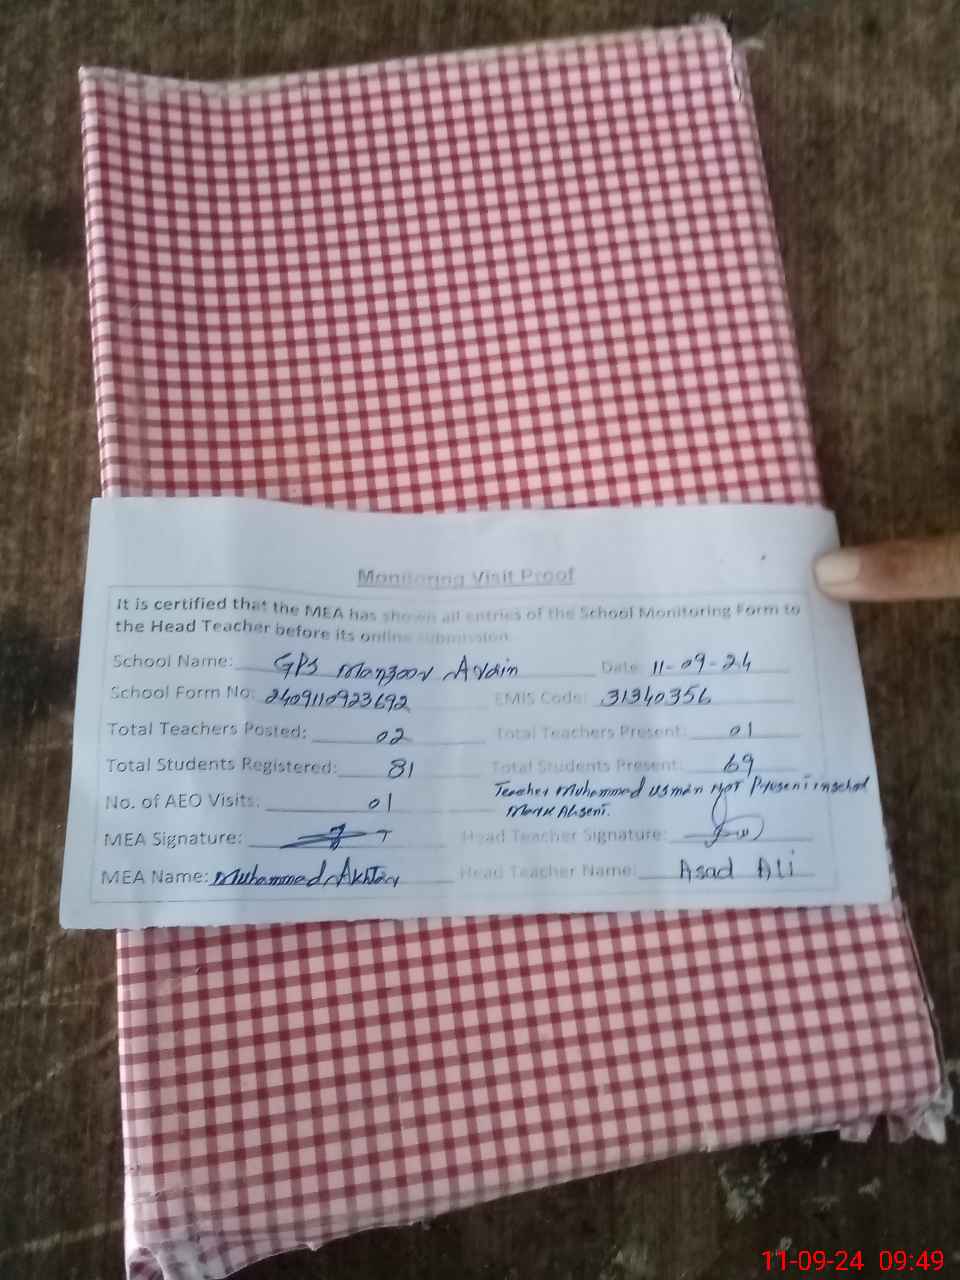 Monitoring Visit Proof
It is certified that the MEA has shown all entries of the School Monitoring Form to
the Head Teacher before its online submission.
School Name: GPS Manzoor Arain Date: 11-09-24
School Form No: 2409110923692 EMIS Code: 31340356
Total Teachers Posted: 02 Total Teachers Present: 01
Total Students Registered: 81 Total Students Present: 69
Teacher Muhammad Usman not Present in school
No. of AEO Visits: 01 Mark Absent.
MEA Signature: Head Teacher Signature:
MEA Name: Muhammad Akhtar Head Teacher Name: Asad Ali
11-09-24 09:49